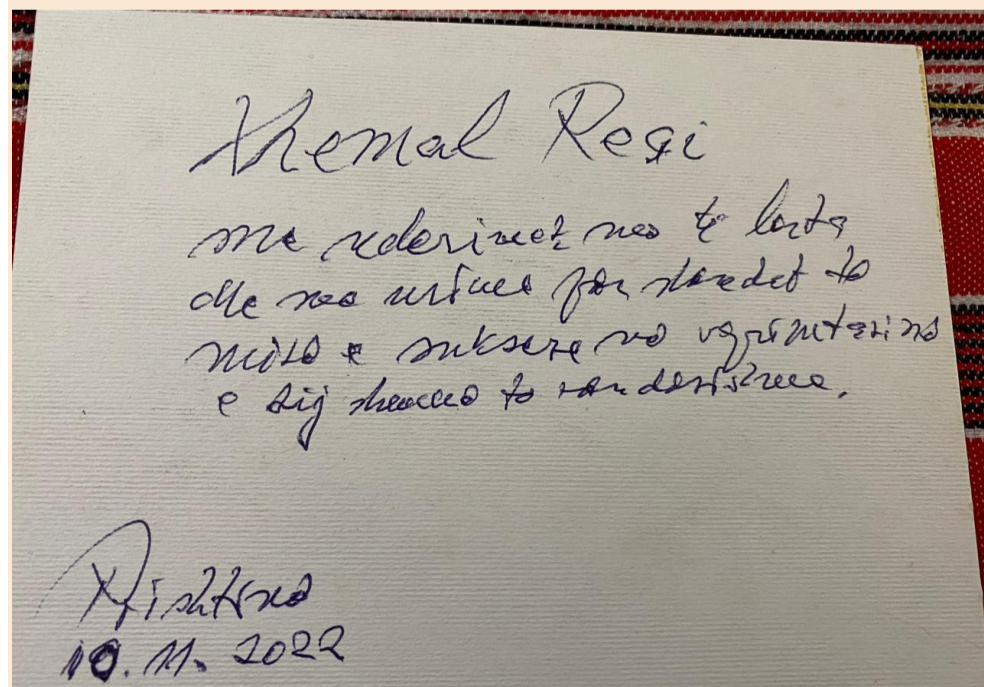 Xhemal Reçi
me nderimet më të larta
dhe me urime për shëndet të
mirë e suksese në veprimtarinë
e tij të rëndësishme.
Prishtinë
10. 11. 2022